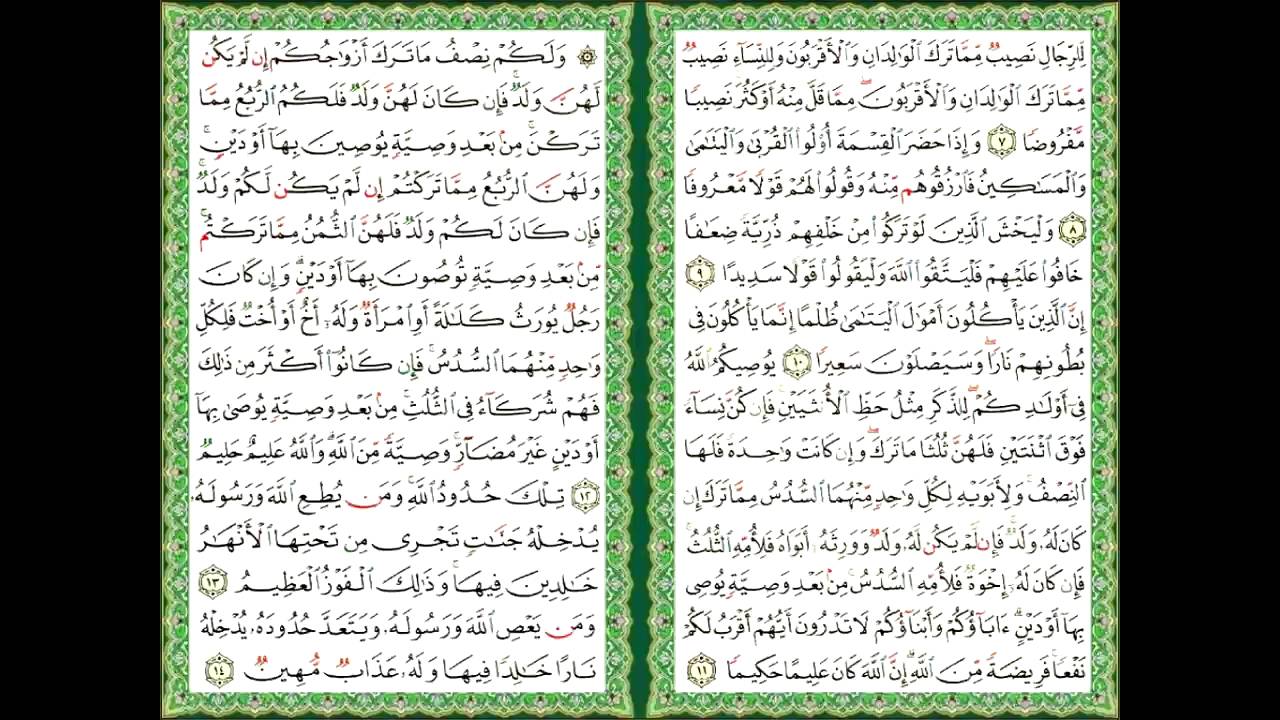 لِّلرِّجَالِ نَصِيبٌ مِّمَّا تَرَكَ ٱلْوَٰلِدَانِ وَٱلْأَقْرَبُونَ وَلِلنِّسَآءِ نَصِيبٌ
مِّمَّا تَرَكَ ٱلْوَٰلِدَانِ وَٱلْأَقْرَبُونَ مِمَّا قَلَّ مِنْهُ أَوْ كَثُرَ نَصِيبًا
مَّفْرُوضًا ٧ وَإِذَا حَضَرَ ٱلْقِسْمَةَ أُو۟لُوا۟ ٱلْقُرْبَىٰ وَٱلْيَتَٰمَىٰ
وَٱلْمَسَٰكِينُ فَٱرْزُقُوهُم مِّنْهُ وَقُولُوا۟ لَهُمْ قَوْلًا مَّعْرُوفًا
٨ وَلْيَخْشَ ٱلَّذِينَ لَوْ تَرَكُوا۟ مِنْ خَلْفِهِمْ ذُرِّيَّةً ضِعَٰفًا
خَافُوا۟ عَلَيْهِمْ فَلْيَتَّقُوا۟ ٱللَّهَ وَلْيَقُولُوا۟ قَوْلًا سَدِيدًا ٩
إِنَّ ٱلَّذِينَ يَأْكُلُونَ أَمْوَٰلَ ٱلْيَتَٰمَىٰ ظُلْمًا إِنَّمَا يَأْكُلُونَ فِى
بُطُونِهِمْ نَارًا وَسَيَصْلَوْنَ سَعِيرًا ١٠ يُوصِيكُمُ ٱللَّهُ
فِىٓ أَوْلَٰدِكُمْ لِلذَّكَرِ مِثْلُ حَظِّ ٱلْأُنثَيَيْنِ فَإِن كُنَّ نِسَآءً
فَوْقَ ٱثْنَتَيْنِ فَلَهُنَّ ثُلُثَا مَا تَرَكَ وَإِن كَانَتْ وَٰحِدَةً فَلَهَا
ٱلنِّصْفُ وَلِأَبَوَيْهِ لِكُلِّ وَٰحِدٍ مِّنْهُمَا ٱلسُّدُسُ مِمَّا تَرَكَ إِن
كَانَ لَهُۥ وَلَدٌ فَإِن لَّمْ يَكُن لَّهُۥ وَلَدٌ وَوَرِثَهُۥٓ أَبَوَاهُ فَلِأُمِّهِ ٱلثُّلُثُ
فَإِن كَانَ لَهُۥٓ إِخْوَةٌ فَلِأُمِّهِ ٱلسُّدُسُ مِنۢ بَعْدِ وَصِيَّةٍ يُوصِى
بِهَآ أَوْ دَيْنٍ ءَابَآؤُكُمْ وَأَبْنَآؤُكُمْ لَا تَدْرُونَ أَيُّهُمْ أَقْرَبُ لَكُمْ
نَفْعًا فَرِيضَةً مِّنَ ٱللَّهِ إِنَّ ٱللَّهَ كَانَ عَلِيمًا حَكِيمًا ١١
۞ وَلَكُمْ نِصْفُ مَا تَرَكَ أَزْوَٰجُكُمْ إِن لَّمْ يَكُن
لَّهُنَّ وَلَدٌ فَإِن كَانَ لَهُنَّ وَلَدٌ فَلَكُمُ ٱلرُّبُعُ مِمَّا
تَرَكْنَ مِنۢ بَعْدِ وَصِيَّةٍ يُوصِينَ بِهَآ أَوْ دَيْنٍ
وَلَهُنَّ ٱلرُّبُعُ مِمَّا تَرَكْتُمْ إِن لَّمْ يَكُن لَّكُمْ وَلَدٌ
فَإِن كَانَ لَكُمْ وَلَدٌ فَلَهُنَّ ٱلثُّمُنُ مِمَّا تَرَكْتُم
مِّنۢ بَعْدِ وَصِيَّةٍ تُوصُونَ بِهَآ أَوْ دَيْنٍ وَإِن كَانَ
رَجُلٌ يُورَثُ كَلَٰلَةً أَوِ ٱمْرَأَةٌ وَلَهُۥٓ أَخٌ أَوْ أُخْتٌ فَلِكُلِّ
وَٰحِدٍ مِّنْهُمَا ٱلسُّدُسُ فَإِن كَانُوٓا۟ أَكْثَرَ مِن ذَٰلِكَ
فَهُمْ شُرَكَآءُ فِى ٱلثُّلُثِ مِنۢ بَعْدِ وَصِيَّةٍ يُوصَىٰ بِهَآ
أَوْ دَيْنٍ غَيْرَ مُضَآرٍّ وَصِيَّةً مِّنَ ٱللَّهِ وَٱللَّهُ عَلِيمٌ حَلِيمٌ
١٢ تِلْكَ حُدُودُ ٱللَّهِ وَمَن يُطِعِ ٱللَّهَ وَرَسُولَهُۥ
يُدْخِلْهُ جَنَّٰتٍ تَجْرِى مِن تَحْتِهَا ٱلْأَنْهَٰرُ
خَٰلِدِينَ فِيهَا وَذَٰلِكَ ٱلْفَوْزُ ٱلْعَظِيمُ ١٣
وَمَن يَعْصِ ٱللَّهَ وَرَسُولَهُۥ وَيَتَعَدَّ حُدُودَهُۥ يُدْخِلْهُ
نَارًا خَٰلِدًا فِيهَا وَلَهُۥ عَذَابٌ مُّهِينٌ ١٤